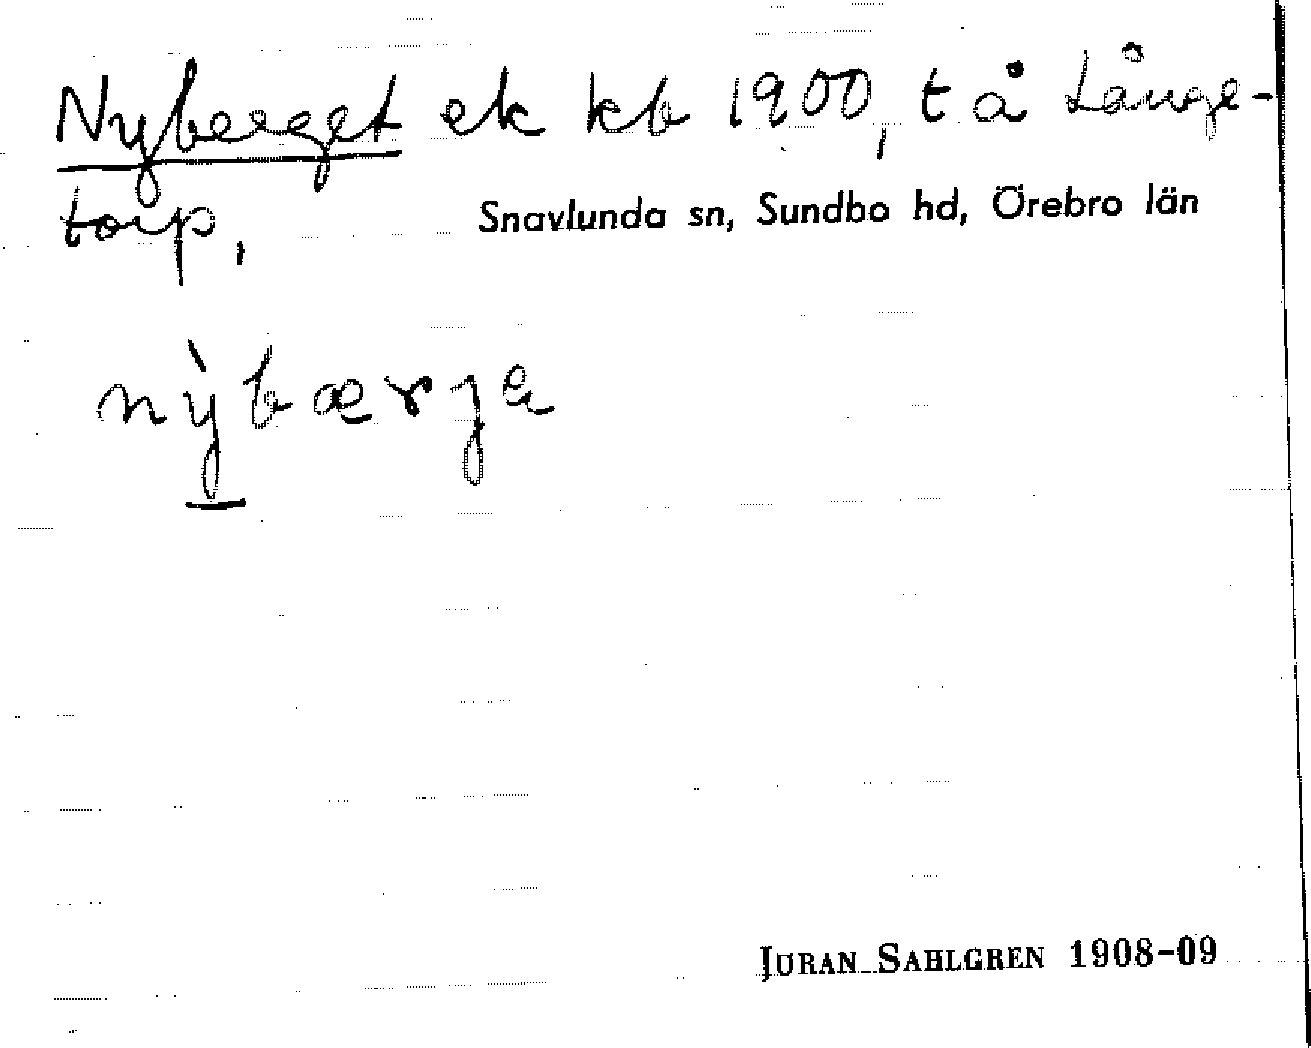 Nyberget ek kb 1900, t å Långe-
torp,
Snavlunda sn, Sundbo hd, Örebro län
nỳbærjа
JÖRAN SAHLGREN 1908-09